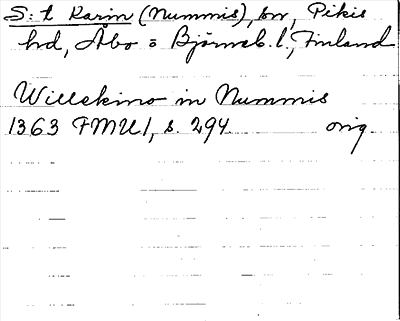 S:t Karin (Nummis), sn, Pikis
hd, Åbo = Björneb. l., Finland
Willekino in Nummis
1363 FMU 1, s. 294 orig